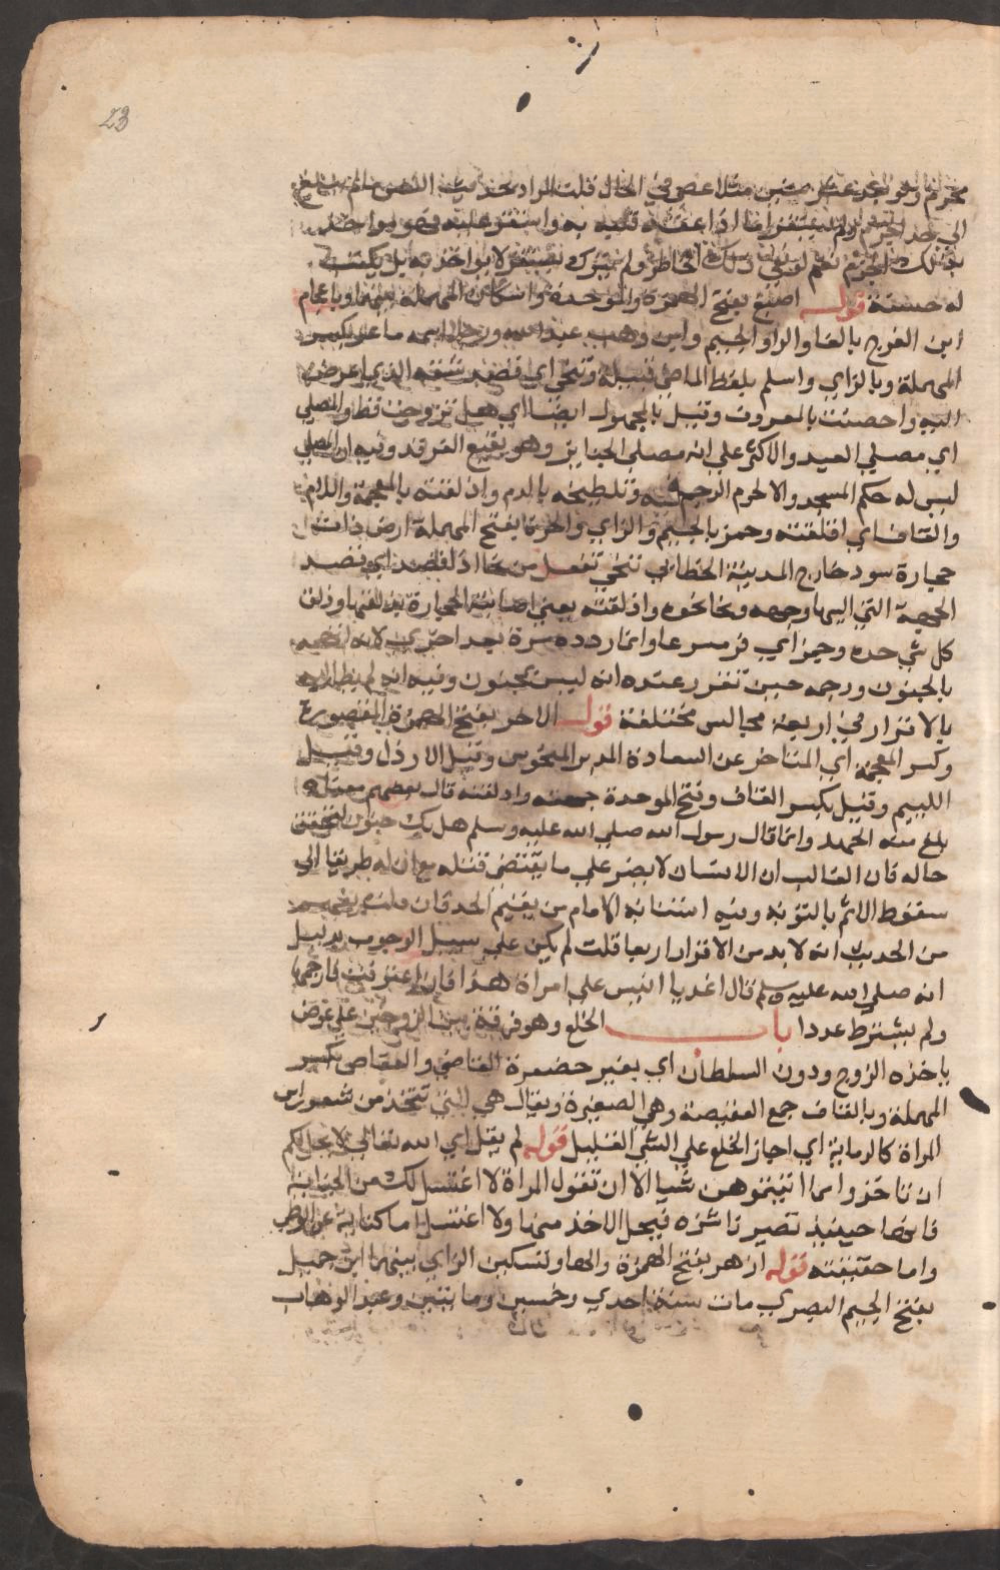 23
له حسنة قوله اصبغ بفتح الهمزة والموحدة واسكان المهملة بينهما وباعجام
ابن الفرج بالفا والرا والجيم وابن وهب عبد الله ورجل اسمه ماعز بكسر
المهملة وبالزاي واسلم بلفظ الماضي قبيلة وتنحي اي قصد شقه الذي اعرض
اليه واحصنت بالمعروف وقيل بالمجهول ايضا اي هل تزوجت قط والمصلي
اي مصلي العيد والاكثر علي انه مصلي الجنايز وهو بقيع الغرقد وفيه ان المصلي
ليس له حكم المسجد والا لحرم الرجم فيه وتلطيخه بالدم واذلقته بالمعجمة واللام
والقاف اي اقلقته وجمز بالجيم والزاي والحرة بفتح المهملة ارض ذات
حجارة سود خارج المدينة الخطابي تنحي تفعل من نحا اذا قصد اي قصد
الجهة التي اليها وجهه ونحا نحوه واذلقته يعني اصابته الحجارة بذلقها وذلق
كل شي حده وجمز اي فر مسرعا وانما ردده مرة بعد اخري لانه اتهمه
بالجنون ورجمه حين تقرر عنده انه ليس بمجنون وفيه انه لم يطالبه
بالاقرار في اربعة مجالس مختلفة قوله الاخر بفتح الهمزة المقصورة
وكسر المعجمة اي المتاخر عن السعادة المدبر المنحوس وقيل الارذل وقيل
اللييم وقيل بكسر القاف وفتح الموحدة جهته واذلقته قال بعضهم معناه
بلغ منه الجهد وانما قال رسول الله صلي الله عليه وسلم هل بك جنون لتحقق
حاله فان الغالب ان الانسان لا يصر علي ما يقتضي قتله مع ان له طريقا الي
سقوط الاثم بالتوبة وفيه استنابة الامام من يقيم الحد فان قلت يفهم
من الحديث انه لا بد من الاقرار اربعا قلت لم يكن علي سبيل الوجوب بدليل
انه صلي الله عليه وسلم قال اغد يا انيس علي امراة هذا فان اعترفت فارجمها
ولم يشترط عددا باب الخلع وهو فرقة بين الزوجين علي عوض
ياخذه الزوج ودون السلطان اي بغير حضرة القاضي والعقاص بكسر
المهملة وبالقاف جمع العقيصة وهي الضفيرة ويقال هي التي تتخذ من شعر راس
المراة كالرمانة اي اجاز الخلع علي الشي القليل قوله لم يقل اي الله تعالي لا يحل لكم
ان تاخذوا مما اتيتموهن شيا الا ان تقول المراة لا اغتسل لك من الجنابة
فانها حينيذ تصير ناشزه فيحل الاخذ منها ولا اغتسل اما كناية عن الوطي
واما حقيقته قوله ازهر بفتح الهمزة والها وتسكين الزاي بينهما ابن جميل
بفتح الجيم البصري مات سنة احدي وخمسين ومايتين وعبد الوهاب